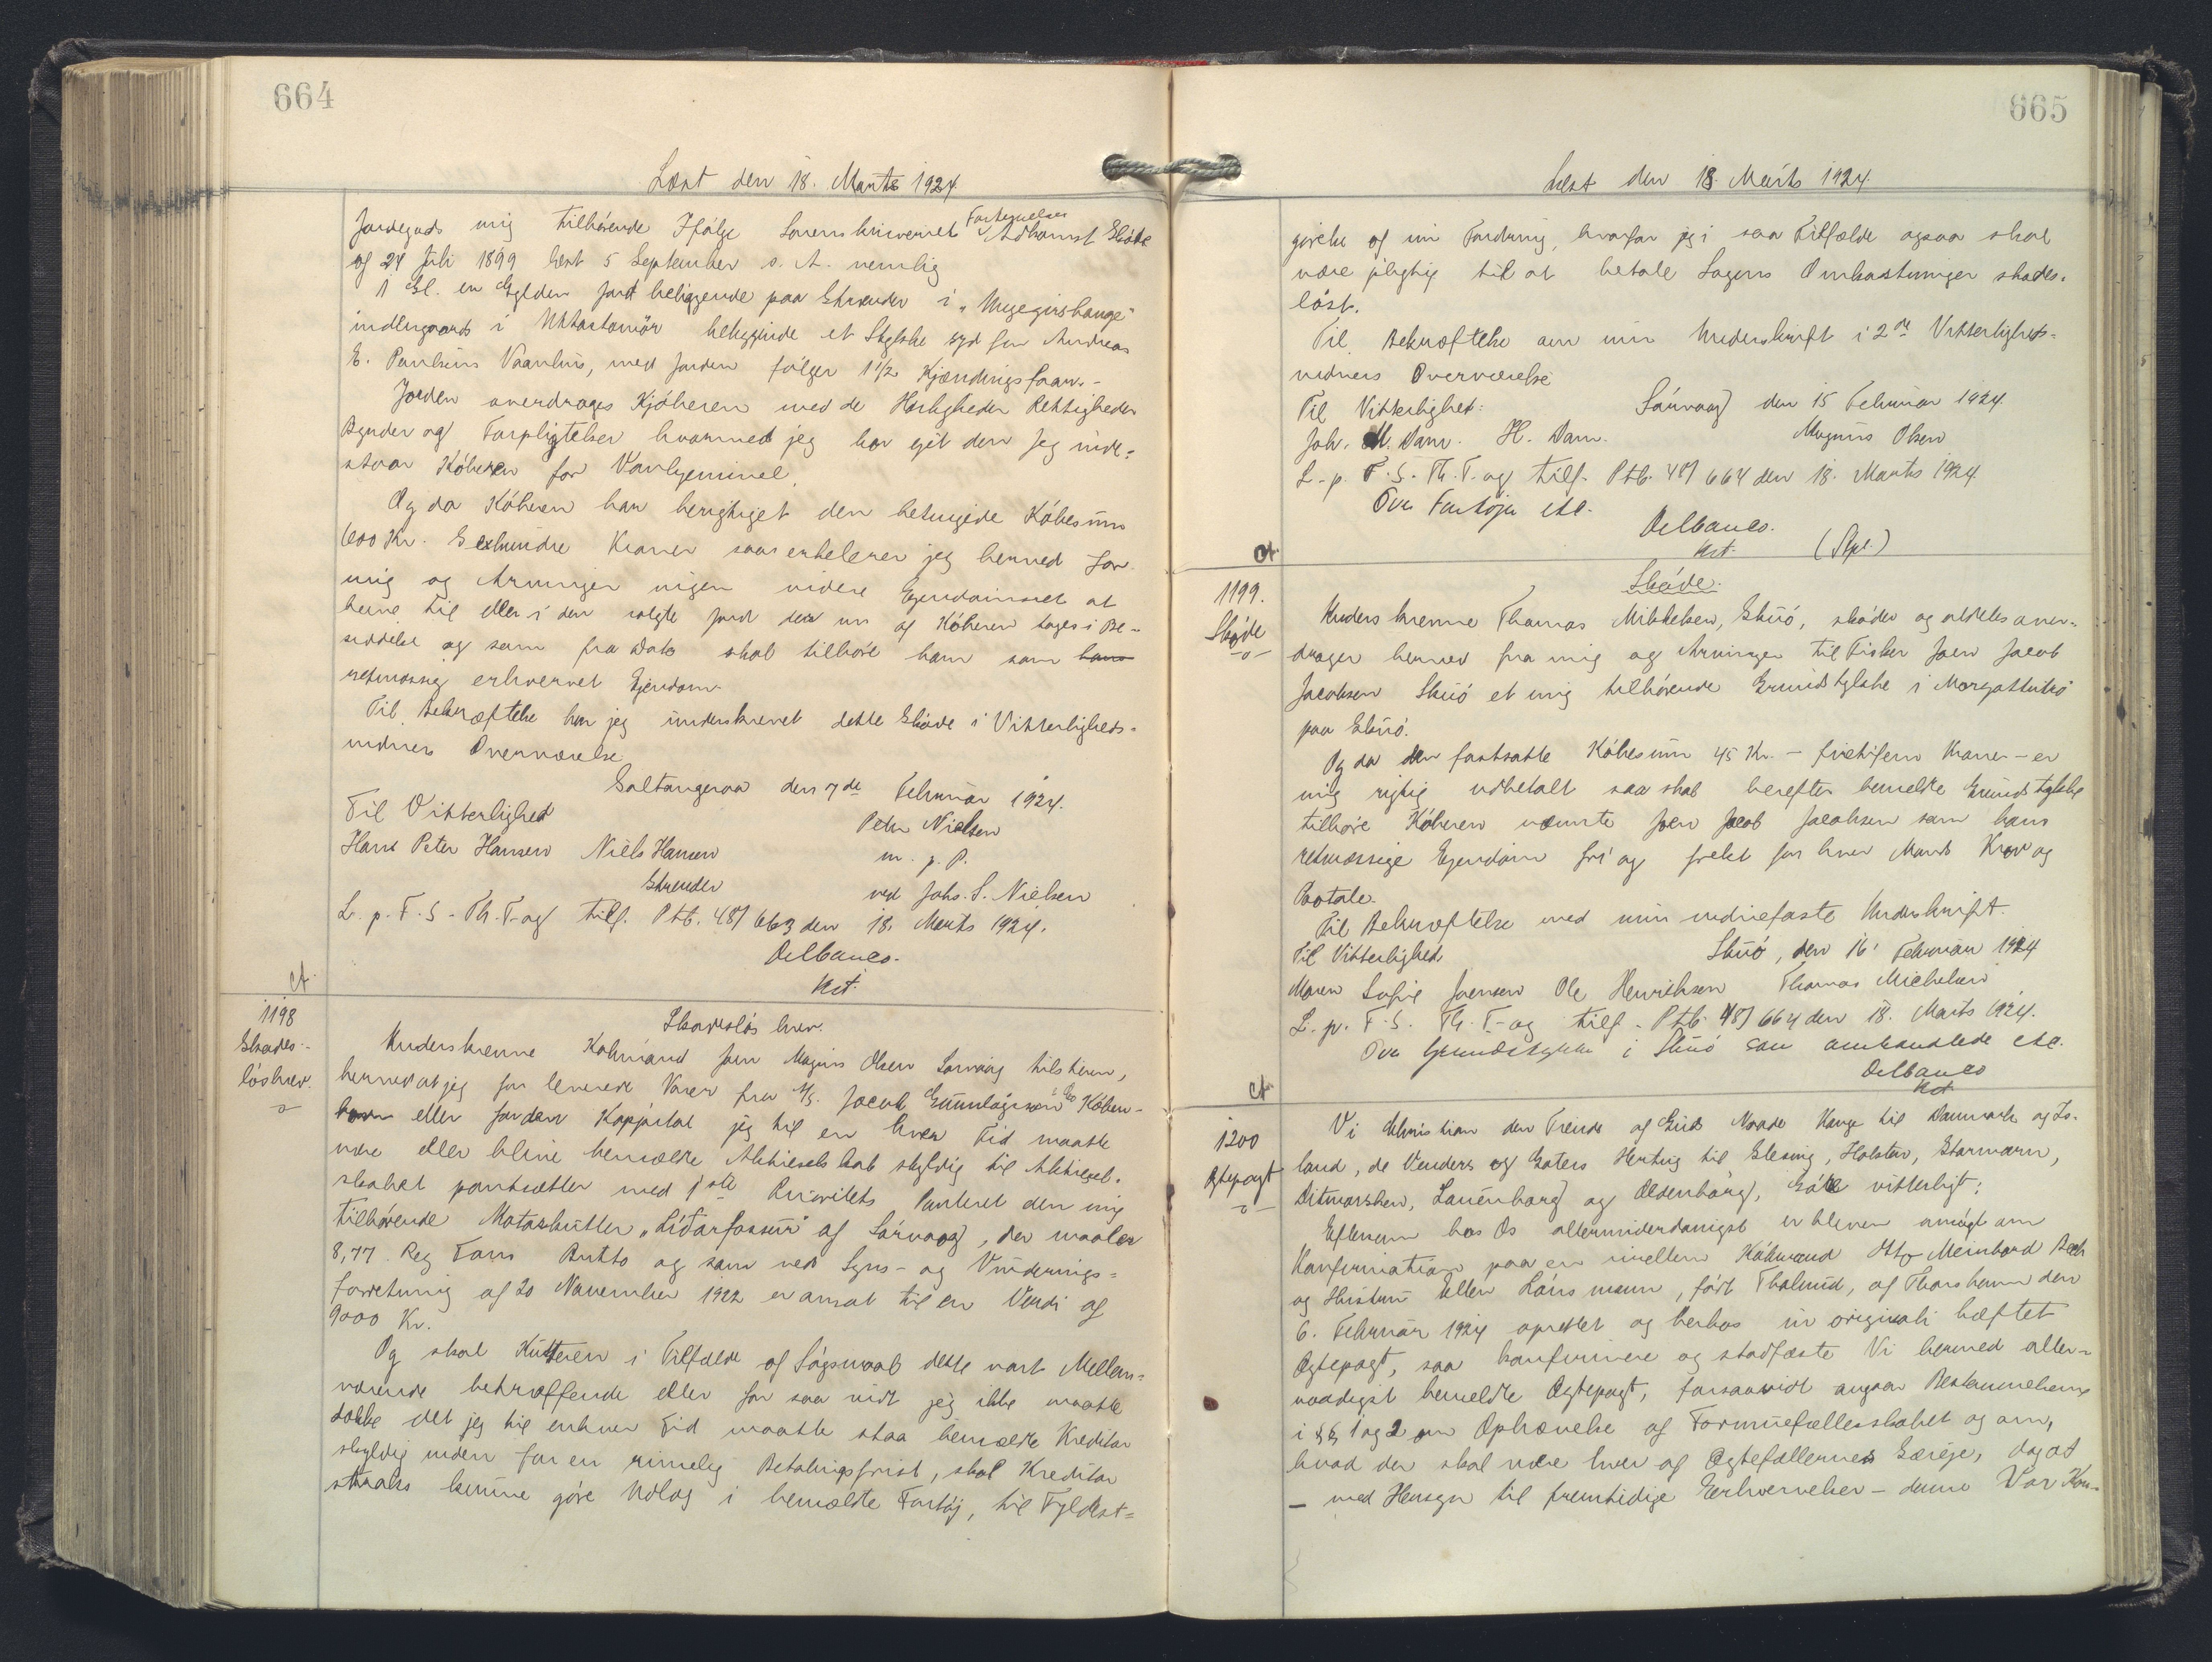 664
Læst den 18. Marts 1924.
Jordegods mig tilhørende Ifølge Sorenskriveriet Fortegnelse Adkomst Skøde
af 24 Juli 1899 læst 5 September s. A. nemlig
1 Gl. en Gylden Jord beliggende paa Strender i
indengaards i beliggende et Stykke syd for Andreas
E. Paulsens Vaanhus, med Jorden følger 1 1/2
Jorden overdrages Kjøberen med de Herligheder Rettigheder
Byrder og Forpligtelser hvormed jeg har ejet den Jeg inde-
staar Køberen for Vanhjemmel.
Og da Køberen har berigtiget den betingede Købesum
600 Kr. Sexhundre Kroner saa erkelerer jeg herved for
mig og Arvinger ingen videre Ejendomsret at
have til eller i den solgte Jord der nu af Køberen tages i Be-
siddelse og som fra Dato skal tilhøre ham som hans
retmæssig erhvervet Ejendom.
Til Bekræftelse har jeg underskrevet dette Skøde i Vitterligheds-
vidners Overværelse
Saltangeraa den 7de Februar 1924.
Til Vitterlighed Peter Nielsen
Hans Peter Hansen Niels Hansen m. p. P.
Strender ved Johs. S. Nielsen
L. p. F. S. - Th. T. og tilf. Ptb. 487 663 den 18. Marts 1924.
Delbanco.
kst.
ct.
1198
Skades-
løsbrev.
Skadesløsbrev.
Underskrevne Købmand Joen Magnus Olsen Sørvaag tilstaar,
herved at jeg for leverede Varer fra A/S. Jacob Gunnlögsson & Co Køben-
havn eller for den Kappital jeg til en hver Tid maatte
være eller blive bemældte Aktieselskab skyldig til Aktiesel-
skabet pantsætter med 1ste Prioritets Panteret den mig
tilhørende Motorkutter af Sørvaag, der maaler
8,77 Reg Tons Brutto og som ved Syns- og Vurderings-
forretning af 20 November 1922 er ansat til en Værdi af
9000 Kr.
Og skal Kutteren i Tilfælde af Søgsmaal dette vort Mellem-
værende betræffende eller for saa vidt jeg ikke maatte
dække det jeg til enhver Tid maatte staa bemældte Kreditor
skyldig inden for en rimelig Betalingsfrist, skal Kreditor
straks kunne gøre Udlæg i bemældte Fartøj, til Fyldest-
665
Læst den 18. Marts 1924
gørelse af sin Fordring, hvorfor jeg i saa Tilfælde ogsaa skal
være pligtig til at betale Sagens Omkostninger skades-
løst.
Til Bekræftelse om min Underskrift i 2de Vitterligheds-
vidners Overværelse
Sørvaag den 15 Februar 1924
Til Vitterlighed:
Joh. M. Dam. H. Dam. Magnus Olsen
L. p. F. S. - Th. T. og tilf. Ptb. 487 664 den 18. Marts 1924.
Ovn Fartøjer etc.
Delbanco.
kst. (Spl.)
ct.
1199.
Skøde
Skøde.
Underskrevne Thomas Mikkelsen, Skuø, skøder og aldeles over-
drager herved fra mig og Arvinger til Fisker Joen Jacob
Jacobsen Skuø et mig tilhørende Grundstykke i
paa Skuø.
Og da den fastsatte Købesum 45 Kr. - firetifem Kroner - er
mig rigtig udbetalt saa skal herefter bemeldte Grundstykke
tilhøre Køberen nævnte Joen Jacob Jacobsen som hans
retmæssige Ejendom fri og frelst for hver Mands Krav og
Paatale.
Til Bekræftelse med min vidnefaste Underskrift.
Til Vitterlighed Skuø, den 16' Februar 1924
Maren Sofie Joensen Ole Henriksen Thomas Michelsen
L. p. F. S. Th. T. og tilf. Ptb. 487 664 den 18. Marts 1924.
Ovn Grundstykke i Skuø som omhandlede etc.
Delbanco
kst
ct
1200
Ægtepagt
Vi Christian den Tiende af Guds Naade Konge til Danmark og Is-
land, de Venders og Goters Hertug til Slesvig, Holsten, Stormarn,
Ditmarsken, Lauenborg og Oldenborg, Gøre vitterligt:
Eftersom hos Os allerunderdanigst er bleven ansøgt om
Konfirmation paa en imellem Købmand Otto Meinhard Bech
og Hustru Ellen født af Thorshavn den
6. Februar 1924 oprettet og herhos in originali hæftet
Ægtepagt, saa konfirmere og stadfæste Vi herved aller-
naadigst bemeldte Ægtepagt, forsaavidt angaar Bestemmelserne
i §§ 1 og 2 om Ophævelse af Formuefællesskabet og om,
hvad der skal være hver af Ægtefællernes Særeje, dog at
- med Hensyn til fremtidige Erhvervelser - denne Vor Kon-